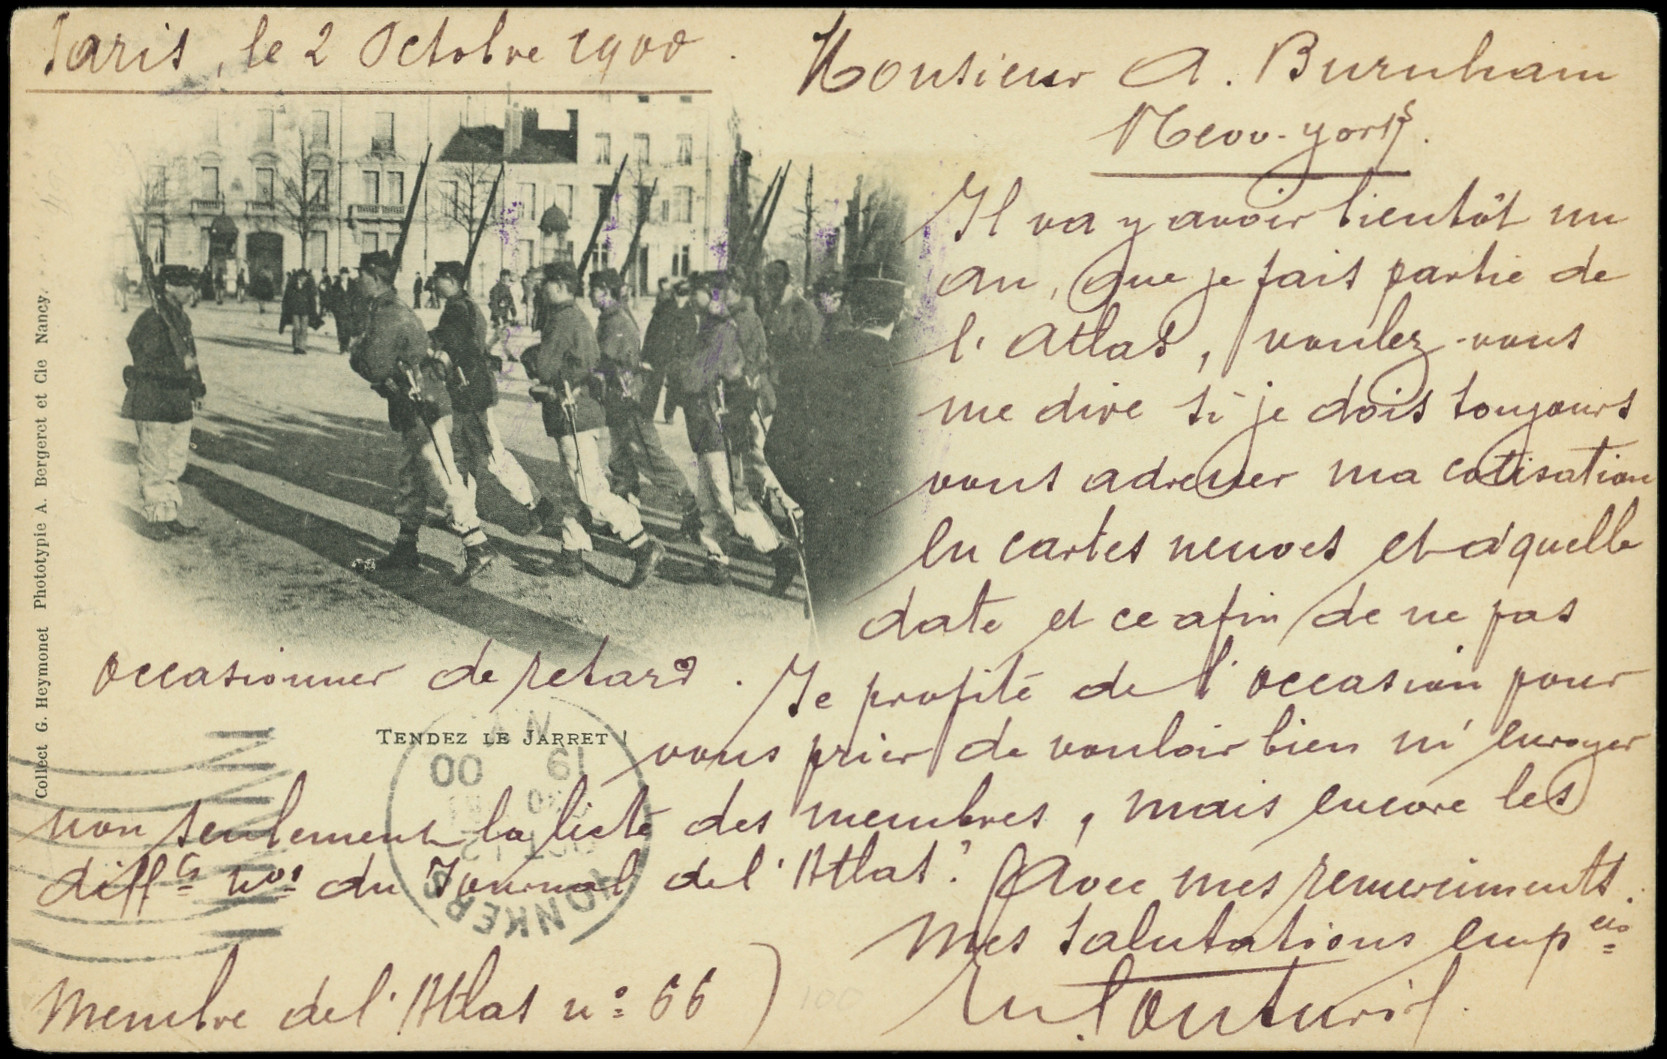 Paris, le 2 Octobre 1900.
Monsieur A. Burnham
New-york.
Il va y avoir bientôt un
an, que je fais partie de
l'Atlas, voulez-vous
me dire si je dois toujours
vous adresser ma cotisation
en cartes neuves et à quelle
date et ce afin de ne pas
occasionner de retard. Je profite de l'occasion pour
vous prier de vouloir bien m'envoyer
non seulement la liste des membres, mais encore les
diffts nos du Journal de l'Atlas? Avec mes remerciments.
Mes salutations emp
Membre de l'Atlas n° 66)
TENDEZ LE JARRET !
Collect G. Heymonet Phototypie A. Bergeret et Cie Nancy.
YONKERS
N.Y.
19
00
100